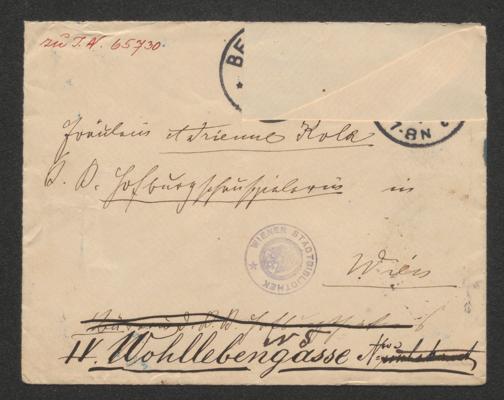 zu I.N. 65730.
BE
7-8N
Fräulein Adrienne Kola
K. K. Hofburgschauspielerin in
WIENER STADTBIBLIOTHEK
Wien
IV. Wohllebengasse No 5